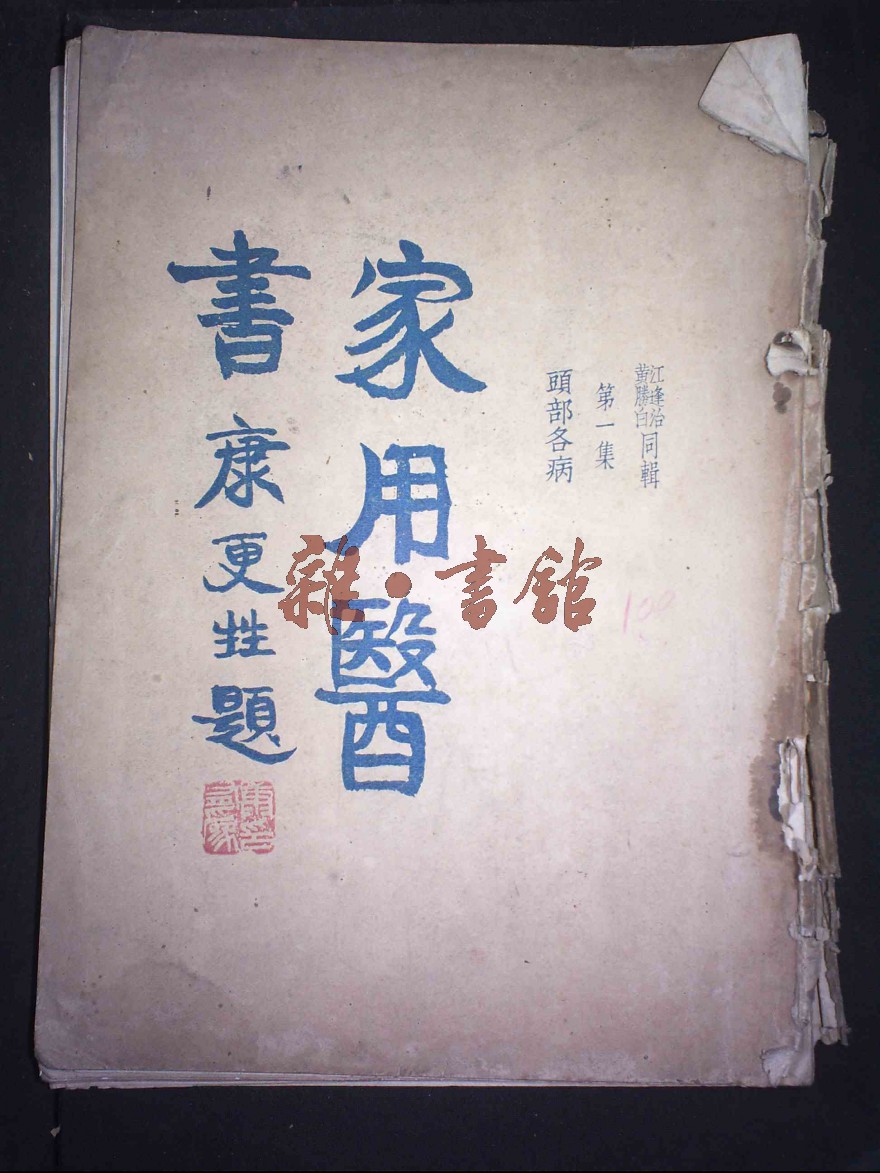 江逢治
黃勝白
同輯
第一集
頭部各病
家用醫
書康更甡題
雜·書館
100